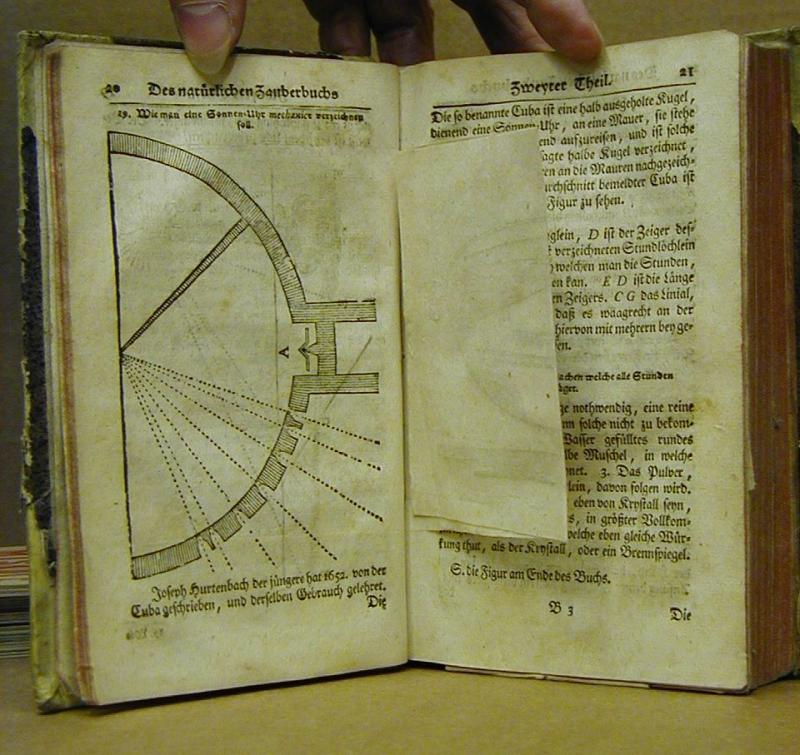 20 Des natürlichen Zauberbuchs
19. Wie man eine Sonnen-Uhr mechanice verzeichnen
soll.
A
Joseph Furtenbach der jüngere hat 1652. von der
Cuba geschrieben, und derselben Gebrauch gelehret.
Die
Zweyter Theil. 21
Die so benannte Cuba ist eine halb ausgeholte Kugel,
dienend eine Sonnen-Uhr, an eine Mauer, sie stehe
end aufzureisen, und ist solche
agte halbe Kugel verzeichnet,
en an die Mauren nachgezeich-
urchschnitt bemeldter Cuba ist
Figur zu sehen.
glein, D ist der Zeiger des-
verzeichneten Stundlöchlein
welchen man die Stunden,
en kan. E D ist die Länge
en Zeigers. C G das Linial,
daß es waagrecht an der
hiervon mit mehrern bey ge-
en.
achen welche alle Stunden
ge nothwendig, eine reine
nn solche nicht zu bekom-
Wasser gefülltes rundes
lbe Muschel, in welche
net. 3. Das Pulver,
lein, davon folgen wird.
eben von Krystall seyn,
s, in größter Vollkom-
welche eben gleiche Wür-
kung thut, als der Krystall, oder ein Brennspiegel.
S. die Figur am Ende des Buchs.
B 3
Die